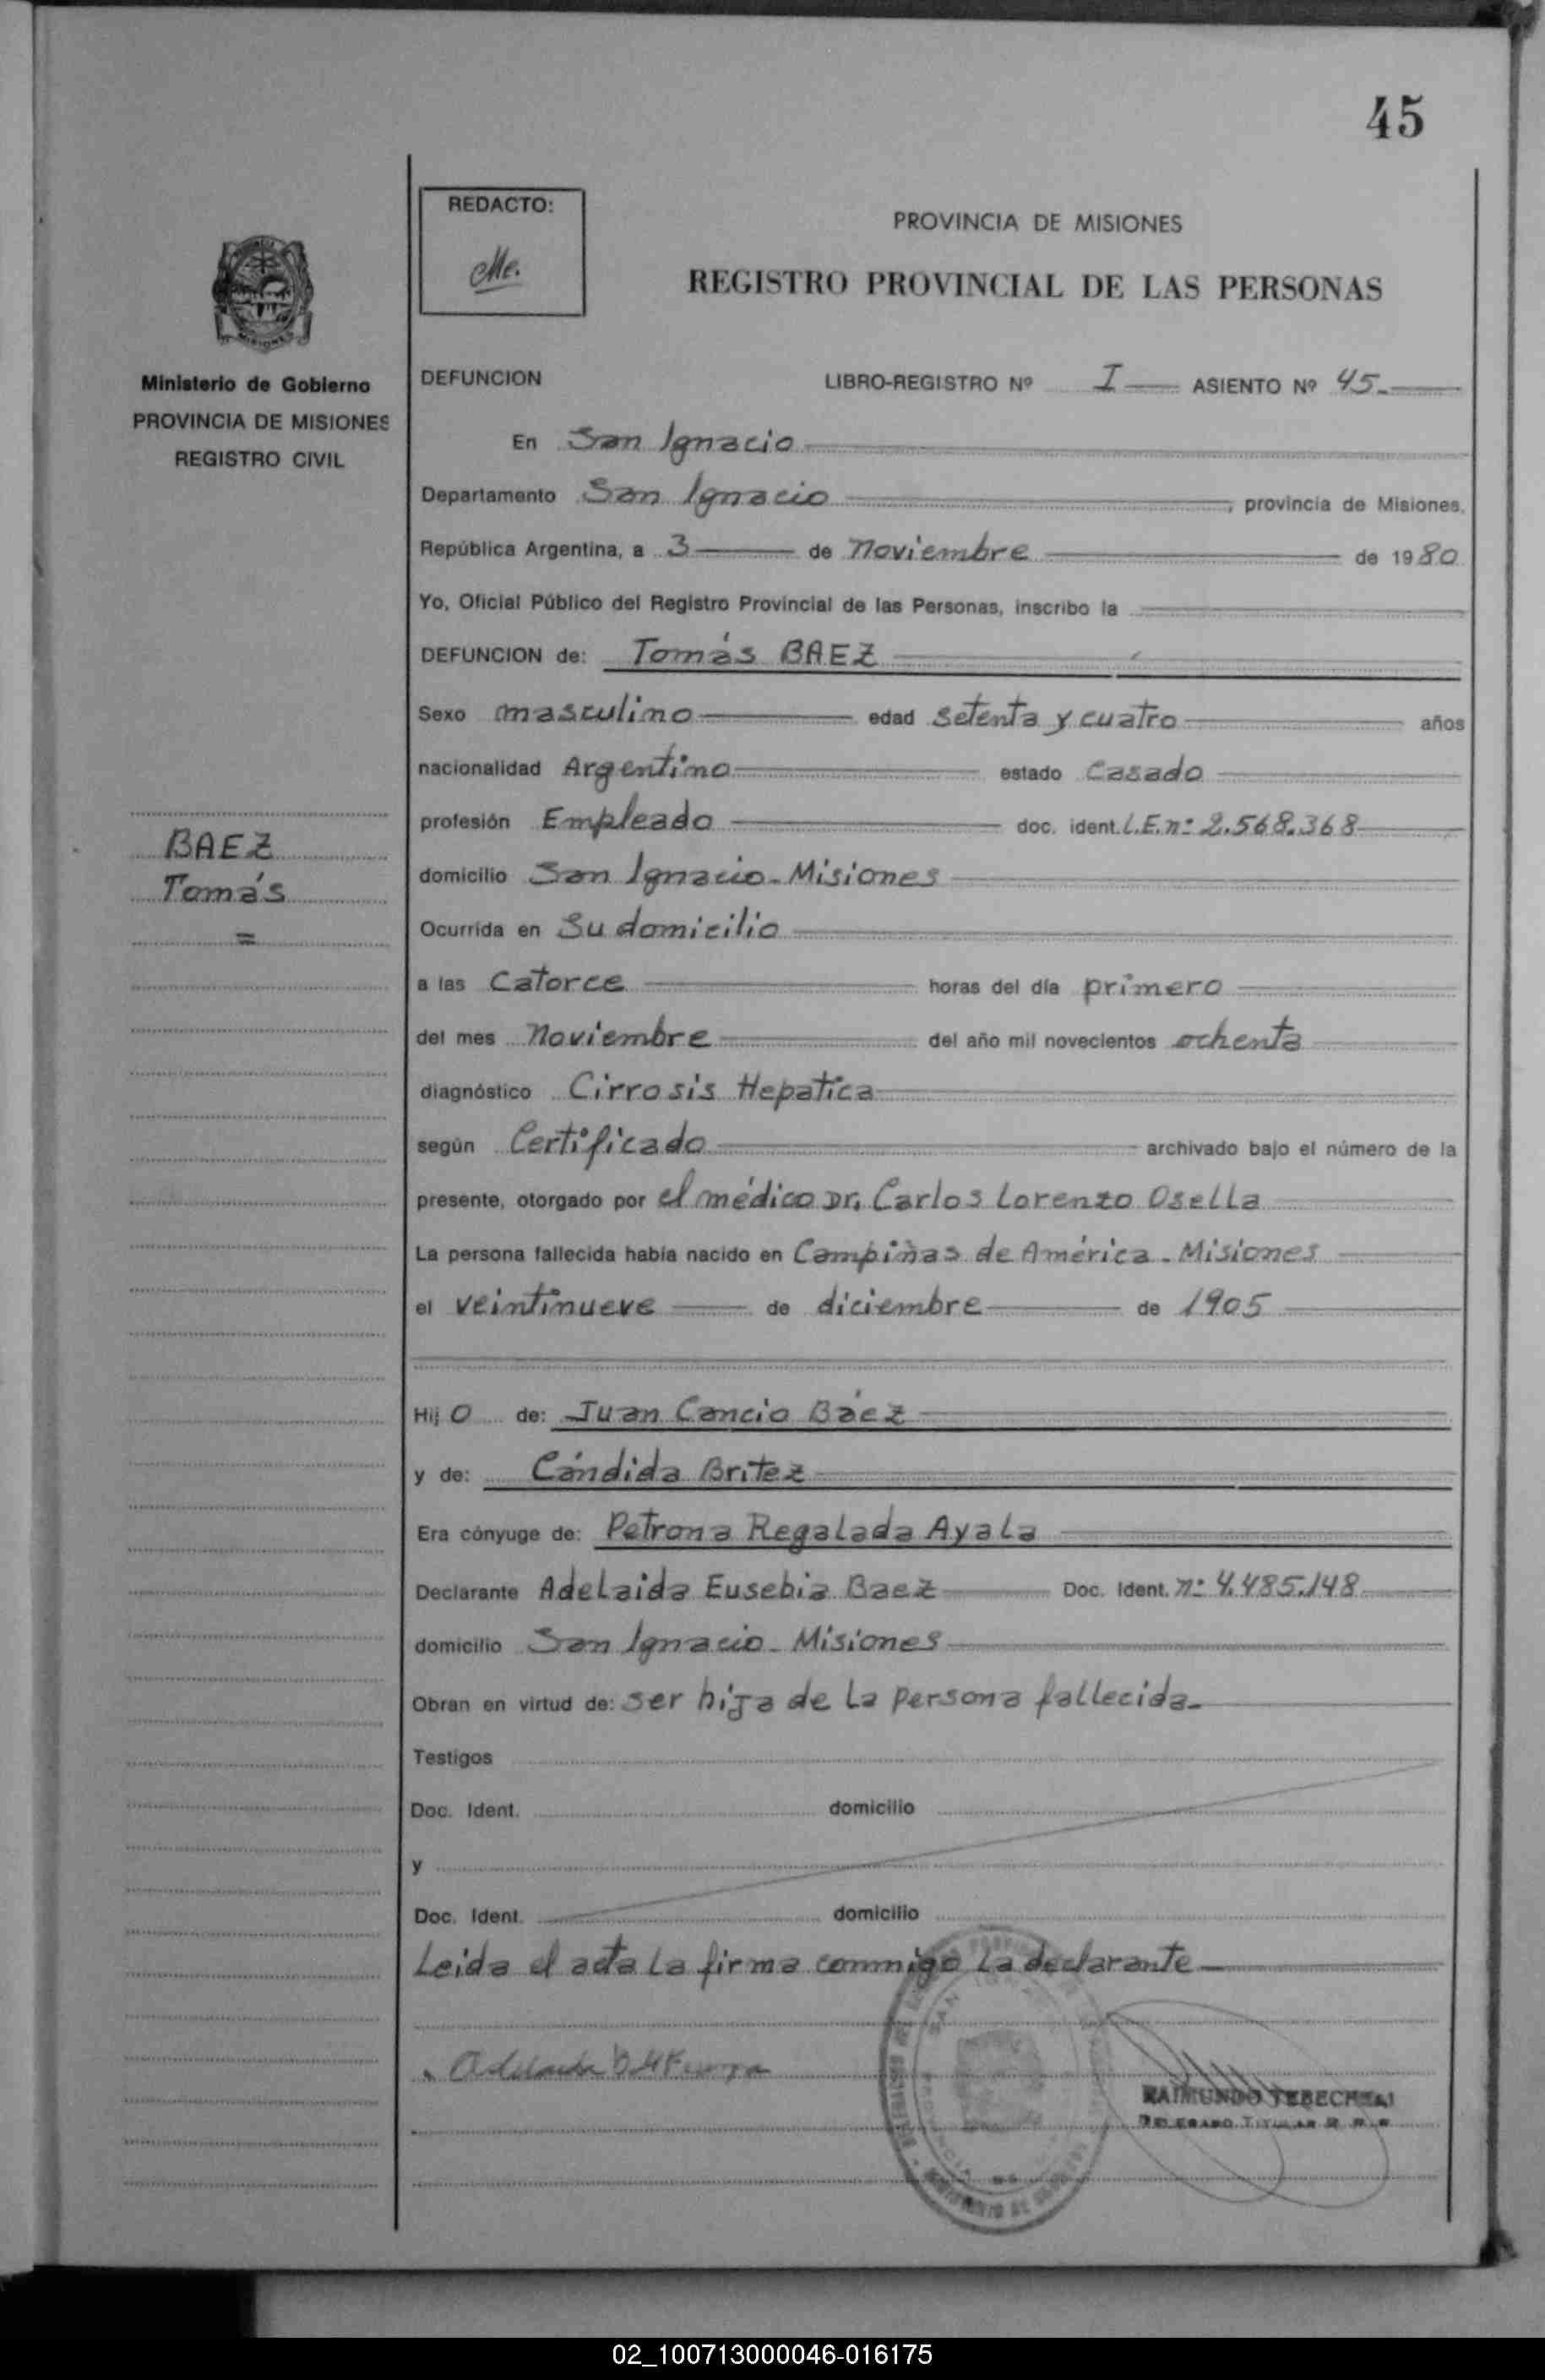 45
REDACTO:
Me.
PROVINCIA DE MISIONES
REGISTRO PROVINCIAL DE LAS PERSONAS
Ministerio de Gobierno
PROVINCIA DE MISIONES
REGISTRO CIVIL
DEFUNCION LIBRO-REGISTRO Nº I ASIENTO Nº 45.
En San Ignacio
Departamento San Ignacio, provincia de Misiones.
República Argentina, a 3 de noviembre de 1980
Yo, Oficial Público del Registro Provincial de las Personas, inscribo la
DEFUNCION de: Tomás BAEZ
Sexo masculino edad setenta y cuatro años
nacionalidad Argentino estado Casado
profesión Empleado doc. ident. L.E. nº 2.568.368
BAEZ
Tomás
=
domicilio San Ignacio - Misiones
Ocurrida en su domicilio
a las Catorce horas del día primero
del mes noviembre del año mil novecientos ochenta
diagnóstico Cirrosis Hepatica
según Certificado archivado bajo el número de la
presente, otorgado por el médico Dr. Carlos Lorenzo Osella
La persona fallecida había nacido en Campiñas de América - Misiones
el veintinueve de diciembre de 1905
Hijo de: Juan Cancio Báez
y de: Cándida Britez
Era cónyuge de: Petrona Regalada Ayala
Declarante Adelaida Eusebia Baez Doc. Ident. nº 4.485.148
domicilio San Ignacio - Misiones
Obran en virtud de: ser hija de la persona fallecida.
Testigos
Doc. Ident. domicilio
y
Doc. Ident. domicilio
Leida el acta la firma conmigo la declarante
Adelaida B
RAIMUNDO
DELEGADO TITULAR R. P. P.
02_100713000046-016175